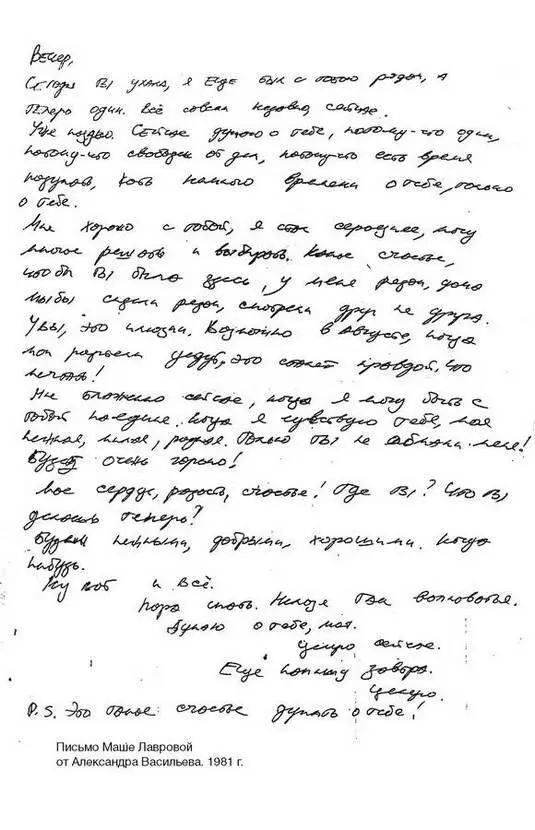 Вечер,
Сегодня ты ухала, я еще был с тобою рядом, а
теперь один. Всё совсем недавно, сейчас.
Уже поздно. Сейчас думаю о тебе, потому-что один,
потому-что свободен от дел, потому-что есть время
подумать, хоть немного времени о тебе, только
о тебе.
Мне хорошо с тобой, я стал серьознее, могу
многое решать и выбирать. Какое счастье,
что бы ты была здесь, у меня рядом, дома
мы бы сидели рядом, смотрели друг на друга.
Увы, это иллюзии. Возможно в августе, когда
мои родители уедут, это станет правдой. Что
мечтать!
Не сложно сейчас, когда я могу быть с
тобой наедине. Когда я чувствую тебя, моя
нежная, милая, родная. Только ты не обмани меня!
Будет очень горько!
Мое сердце, радость, счастье! Где ты? Что ты
делаешь теперь?
Будем нежными, добрыми, хорошими. Когда
нибудь.
Ну вот и всё.
Пора спать. Нельзя так волноваться.
Думаю о тебе, моя.
Целую сейчас.
Еще напишу завтра.
Целую.
P.S. Это такое счастье думать о тебе!
Письмо Маше Лавровой
от Александра Васильева. 1981 г.